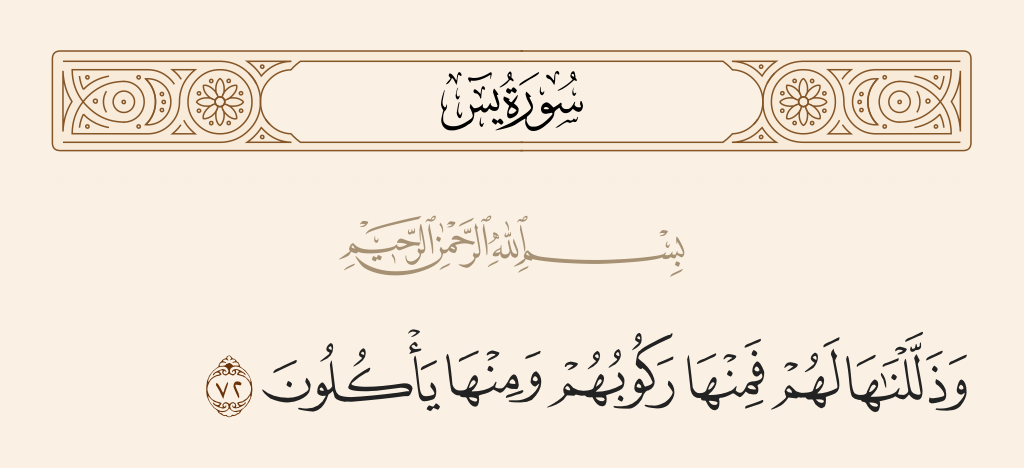 سُورَةُ يسٓ
بِسْمِ ٱللَّهِ ٱلرَّحْمَٰنِ ٱلرَّحِيمِ
وَذَلَّلْنَٰهَا لَهُمْ فَمِنْهَا رَكُوبُهُمْ وَمِنْهَا يَأْكُلُونَ ٧٢